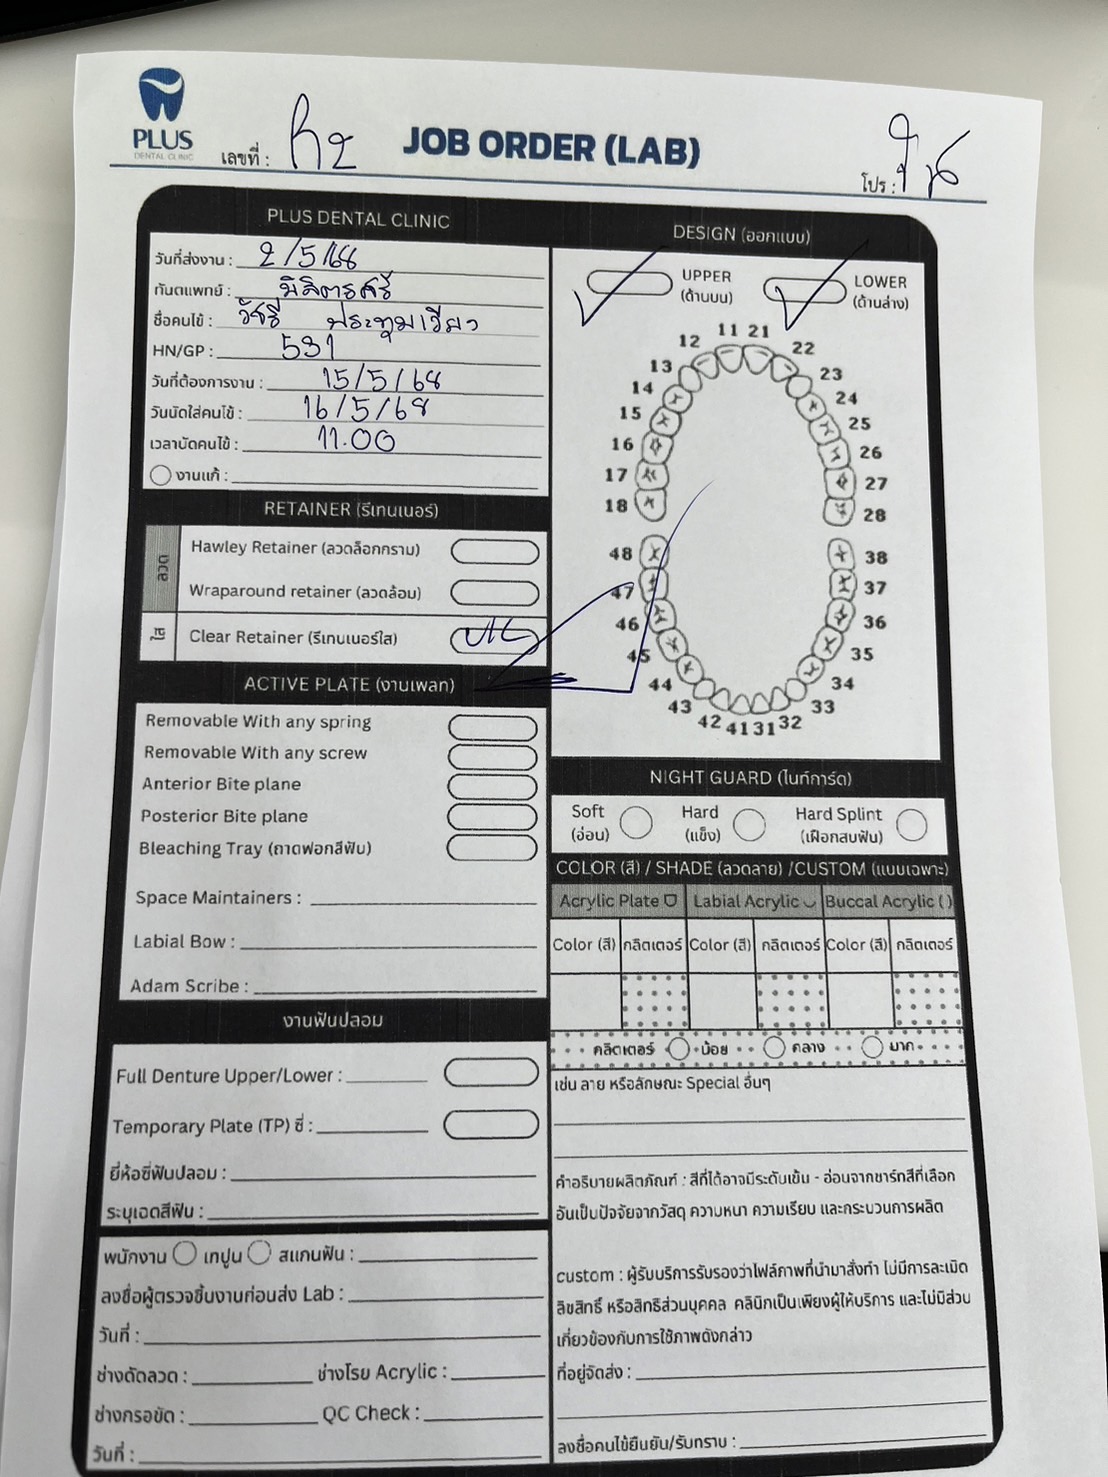 PLUS
DENTAL CLINIC
เลขที่ :
JOB ORDER (LAB)
โปร :
PLUS DENTAL CLINIC
วันที่ส่งงาน : 2/5/68
ทันตแพทย์ :
ชื่อคนไข้ : วัชรี ประทุมเวียง
HN/GP : 531
วันที่ต้องการงาน : 15/5/68
วันนัดใส่คนไข้ : 16/5/68
เวลานัดคนไข้ : 11.00
งานแก้ :
RETAINER (รีเทนเนอร์)
ลวด
Hawley Retainer (ลวดล็อกกราม)
Wraparound retainer (ลวดล้อม)
ใส
Clear Retainer (รีเทนเนอร์ใส) U/L
ACTIVE PLATE (งานเพลท)
Removable With any spring
Removable With any screw
Anterior Bite plane
Posterior Bite plane
Bleaching Tray (ถาดฟอกสีฟัน)
Space Maintainers :
Labial Bow :
Adam Scribe :
งานฟันปลอม
Full Denture Upper/Lower :
Temporary Plate (TP) ซี่ :
ยี่ห้อซี่ฟันปลอม :
ระบุเฉดสีฟัน :
พนักงาน เทปูน สแกนฟัน :
ลงชื่อผู้ตรวจชิ้นงานก่อนส่ง Lab :
วันที่ :
ช่างดัดลวด : ช่างโรย Acrylic :
ช่างกรอขัด : QC Check :
วันที่ :
DESIGN (ออกแบบ)
UPPER LOWER
(ด้านบน) (ด้านล่าง)
11 21
12 22
13 23
14 24
15 25
16 26
17 27
18 28
48 38
47 37
46 36
45 35
44 34
43 33
42 41 31 32
NIGHT GUARD (ไนท์การ์ด)
Soft Hard Hard Splint
(อ่อน) (แข็ง) (เฝือกสบฟัน)
COLOR (สี) / SHADE (ลวดลาย) /CUSTOM (แบบเฉพาะ)
Acrylic Plate Labial Acrylic Buccal Acrylic ( )
Color (สี) กลิตเตอร์ Color (สี) กลิตเตอร์ Color (สี) กลิตเตอร์
กลิตเตอร์ น้อย กลาง มาก
เช่น ลาย หรือลักษณะ Special อื่นๆ
คำอธิบายผลิตภัณฑ์ : สีที่ได้อาจมีระดับเข้ม - อ่อนจากชาร์ทสีที่เลือก
อันเป็นปัจจัยจากวัสดุ ความหนา ความเรียบ และกระบวนการผลิต
custom : ผู้รับบริการรับรองว่าไฟล์ภาพที่นำมาสั่งทำ ไม่มีการละเมิด
ลิขสิทธิ์ หรือสิทธิส่วนบุคคล คลินิกเป็นเพียงผู้ให้บริการ และไม่มีส่วน
เกี่ยวข้องกับการใช้ภาพดังกล่าว
ที่อยู่จัดส่ง :
ลงชื่อคนไข้ยืนยัน/รับทราบ :